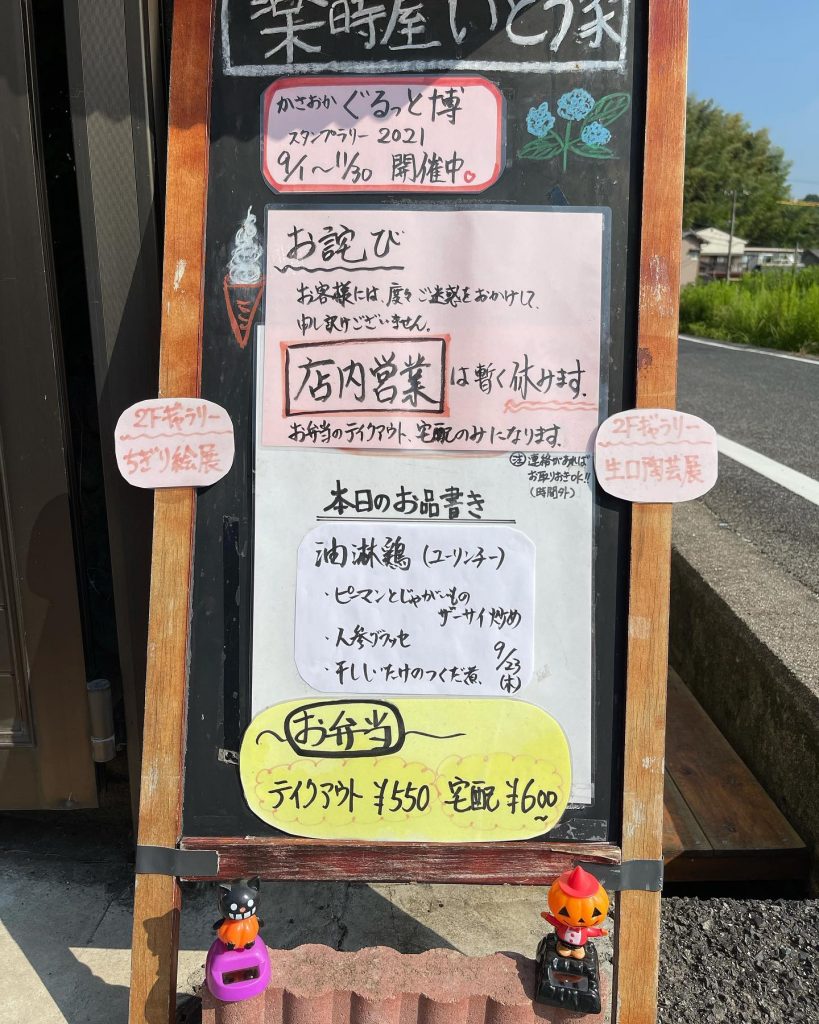 楽時屋いとう家
かさおか ぐるっと博
スタンプラリー 2021
9/1〜11/30 開催中
お詫び
お客様には、度々ご迷惑をおかけして、
申し訳ございません。
店内営業は暫く休みます。
お弁当のテイクアウト、宅配のみになります。
注 連絡があれば
お取りおきOK!!
(時間外)
2Fギャラリー
ちぎり絵展
2Fギャラリー
生口陶芸展
本日のお品書き
油淋鶏(ユーリンチー)
・ピーマンとじゃがいもの
ザーサイ炒め
・人参グラッセ
・干ししいたけのつくだ煮、
9/23
(木)
お弁当
テイクアウト ¥550 宅配 ¥600